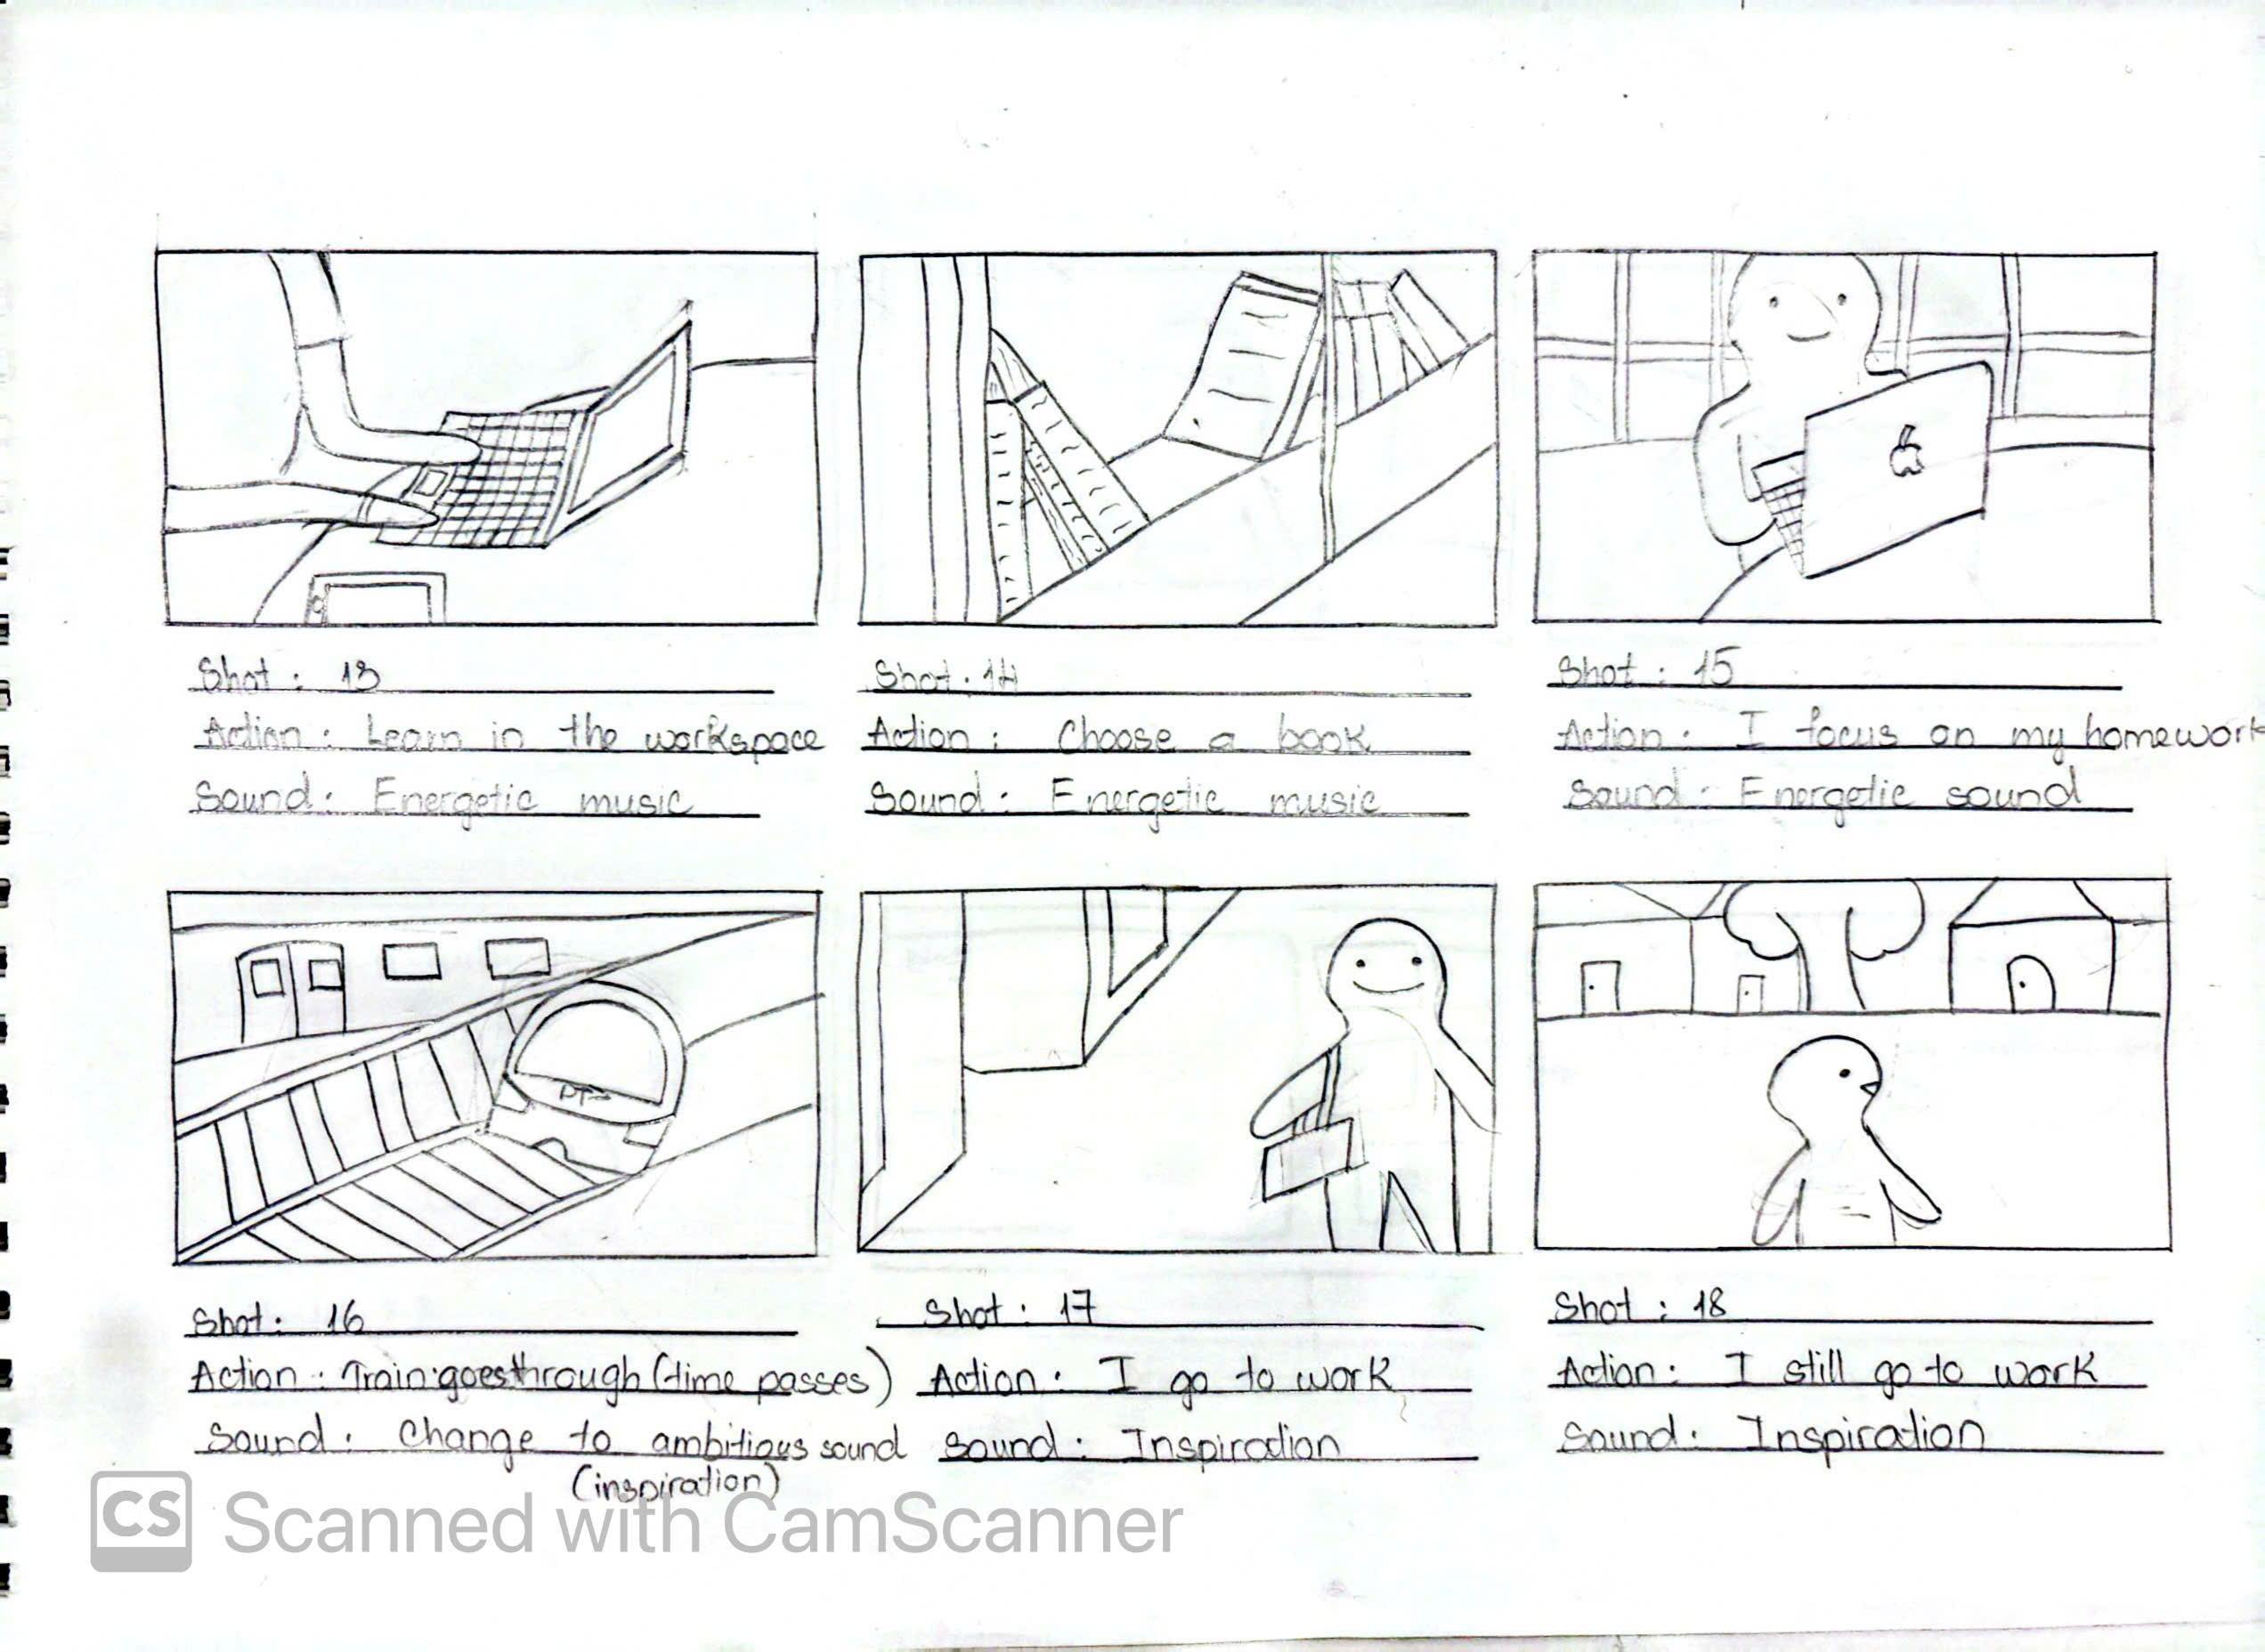 Shot: 13
Action: Learn in the workspace
Sound: Energetic music
Shot: 14
Action: Choose a book
Sound: Energetic music
Shot: 15
Action: I focus on my homework
Sound: Energetic sound
Shot: 16
Action: Train goes through (time passes)
Sound: Change to ambitious sound
(inspiration)
Shot: 17
Action: I go to work
Sound: Inspiration
Shot: 18
Action: I still go to work
Sound: Inspiration
CS Scanned with CamScanner